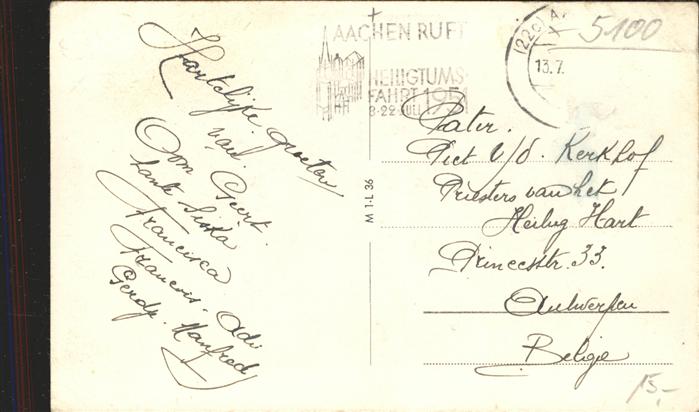 Hartelijke groeten
van
Oom Geert.
tante Siska
Francisca
Francois. Adi
Gerdy. Manfred
AACHEN RUFT
HEILIGTUMS
FAHRT 1951
8-22 JULI
(22c) A
13.7.
5100
Pater.
Piet v/d. Kerkhof
Priesters van het
Heilig Hart
Princesstr. 33.
Antwerpen
Belgie
M 1-L 36
15,-